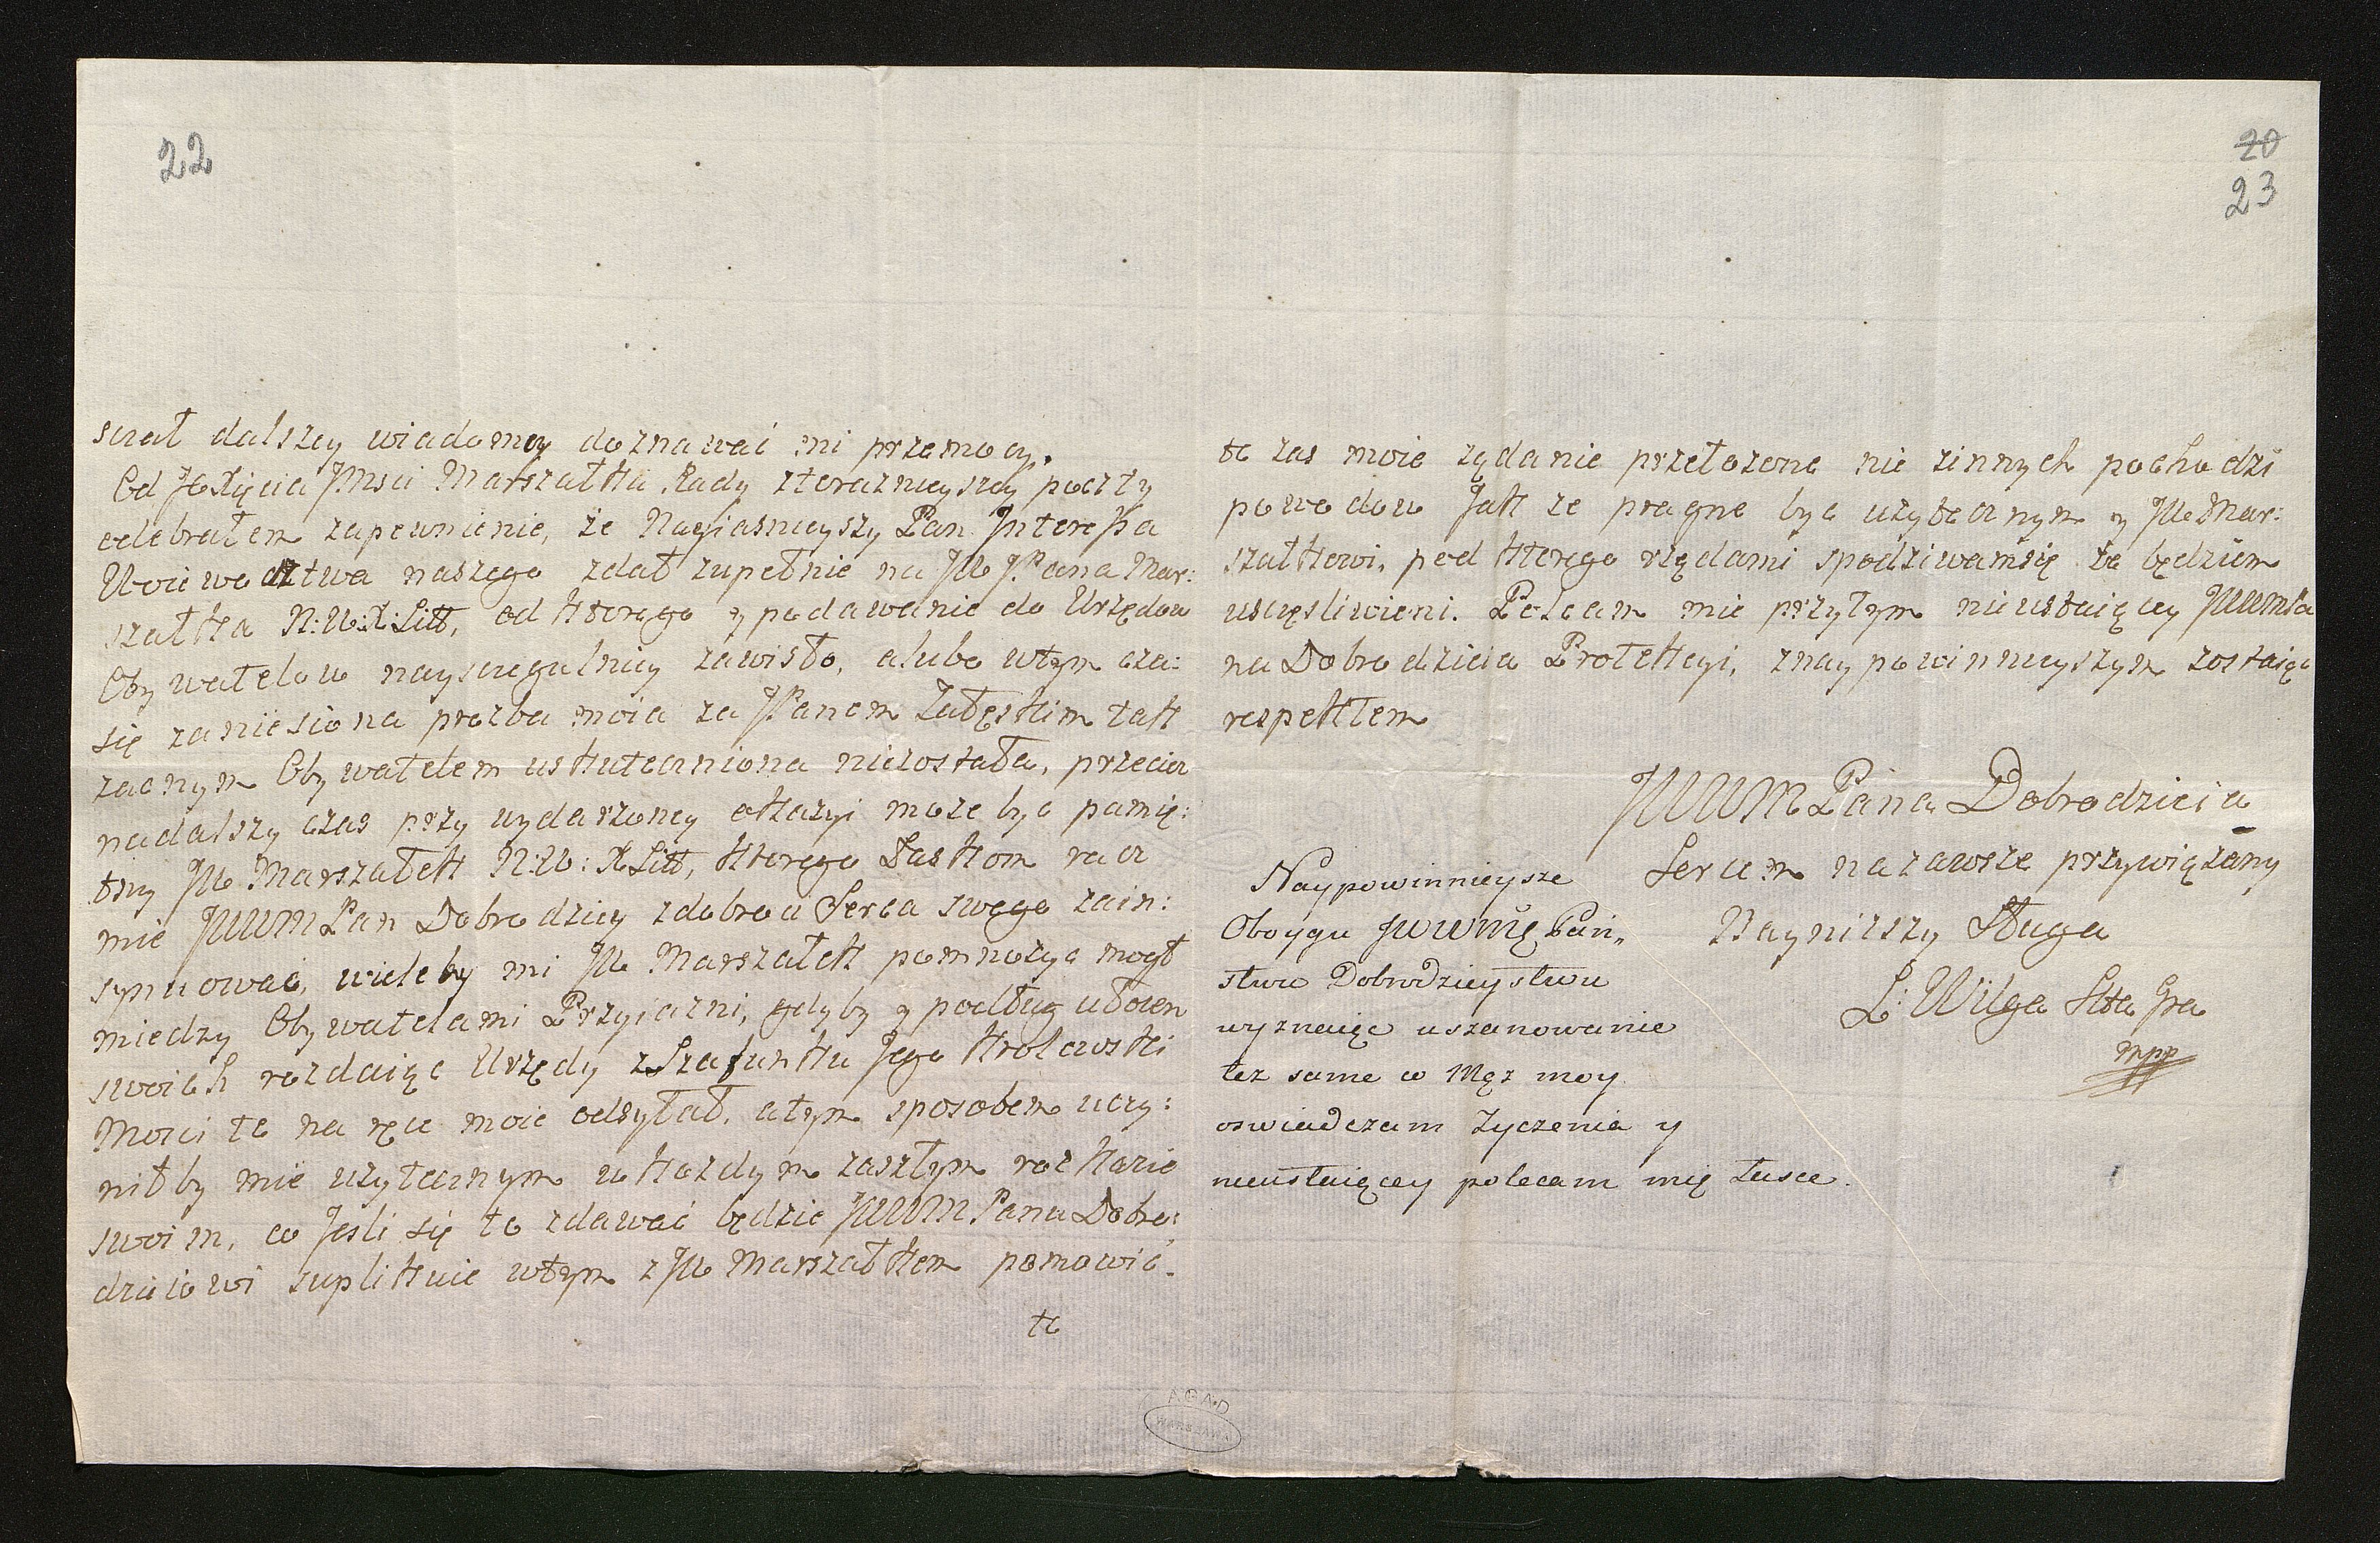 22
sciał dalszey wiadomey doznawać mi przemocy.
Od JOXięcia JMsci Marszałka Rady zterazniejszey poczty
odebrałem zapewnienie, że Nayiasnieyszy Pan Interessa
Woiewodztwa naszego zdał zupełnie na JW JPana Mar:
szałka N: W: X Litt, od ktorego y podawanie do Urzędow
Obywatelow nayszczegulniey zawisło, alubo wtym cza:
się zaniesiona prozba moia za JPanem Załęskim tak
zacnym Obywatelem uskuteczniona niezostała, przeciez
nadalszy czas przy wydarzoney okazyi moze byc pamię:
tny JW Marszałek N: W: X Litt, ktorego Łaskom racz
mie JWWM Pan Dobrodziey zdobroci Serca swego zain:
synuować, wieleby mi JW Marszałek pomnożyc mogł
miedzy Obywatelami Przyiazni, gdyby y podług
swoich rozdaiąc Urzędy z Szafunku Jego Krolewski
Mosci te na ręce moie odsyłał, atym sposobem uczy:
niłby mie uzytecznym w kazdym zaszłym rozkazie
swoim, co Jesli się to zdawać będzie JWWM Panu Dobro:
dzieiowi suplikuie wtym z JW Marszałkiem pomowić.
te
20
23
te zas moie ządanie przełozone nie zinnych pochodzi
powodow Jak ze pragne byc uzytecznym y JW Mar:
szałkowi, pod ktorego rządami spodziwamsię ze będziem
uszczęsliwieni. Polecam mie przytym nieustaiącey JWWMPa
na Dobrodzieia Protekcyi, znaypowinnieyszym zostaiąc
respektem
JWWM Pana Dobrodzieia
Sercem na zawsze przywiązany
Naynizszy Sługa
L: Wilga Stta Gra
mpp
Naypowinnieysze
Oboyga JWWMĘ Pań„
stwu Dobrodzieystwu
wyznaiąc uszanowanie
tez same co Mąz moy
oswiadczam Zyczenia y
nieustaiącey polecam mię Łasce.
AGAD
WARSZAWA